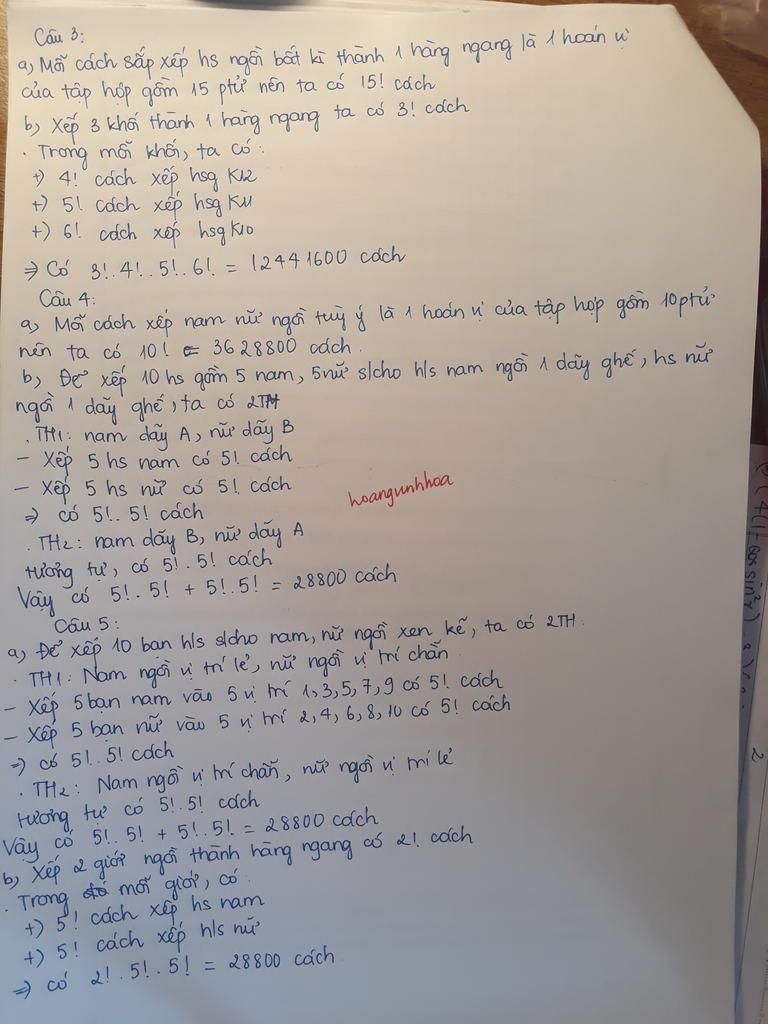 Câu 3:
a, Mỗi cách sắp xếp hs ngồi bất kì thành 1 hàng ngang là 1 hoán vị
của tập hợp gồm 15 ptử nên ta có 15! cách
b, Xếp 3 khối thành 1 hàng ngang ta có 3! cách
. Trong mỗi khối, ta có:
+) 4! cách xếp hsg K12
+) 5! cách xếp hsg K11
+) 6! cách xếp hsg K10
⇒ Có 3!.4!.5!.6! = 12441600 cách
Câu 4:
a, Mỗi cách xếp nam nữ ngồi tuỳ ý là 1 hoán vị của tập hợp gồm 10 ptử
nên ta có 10! = 3628800 cách.
b, Để xếp 10 hs gồm 5 nam, 5 nữ s/cho h/s nam ngồi 1 dãy ghế, hs nữ
ngồi 1 dãy ghế, ta có 2TH
. TH1: nam dãy A, nữ dãy B
- Xếp 5 hs nam có 5! cách
- Xếp 5 hs nữ có 5! cách
⇒ có 5!.5! cách
hoangunhhoa
. TH2: nam dãy B, nữ dãy A
tương tự, có 5!.5! cách
Vậy có 5!.5! + 5!.5! = 28800 cách
Câu 5:
a, Để xếp 10 bạn h/s s/cho nam, nữ ngồi xen kẽ, ta có 2TH.
. TH1: Nam ngồi vị trí lẻ, nữ ngồi vị trí chẵn
- Xếp 5 bạn nam vào 5 vị trí 1,3,5,7,9 có 5! cách
- Xếp 5 bạn nữ vào 5 vị trí 2,4,6,8,10 có 5! cách
⇒ có 5!.5! cách
. TH2: Nam ngồi vị trí chẵn, nữ ngồi vị trí lẻ
tương tự có 5!.5! cách
Vậy có 5!.5! + 5!.5! = 28800 cách
b, Xếp 2 giới ngồi thành hàng ngang có 2! cách
. Trong mỗi giới, có:
+) 5! cách xếp hs nam
+) 5! cách xếp h/s nữ
⇒ có 2!.5!.5! = 28800 cách
2